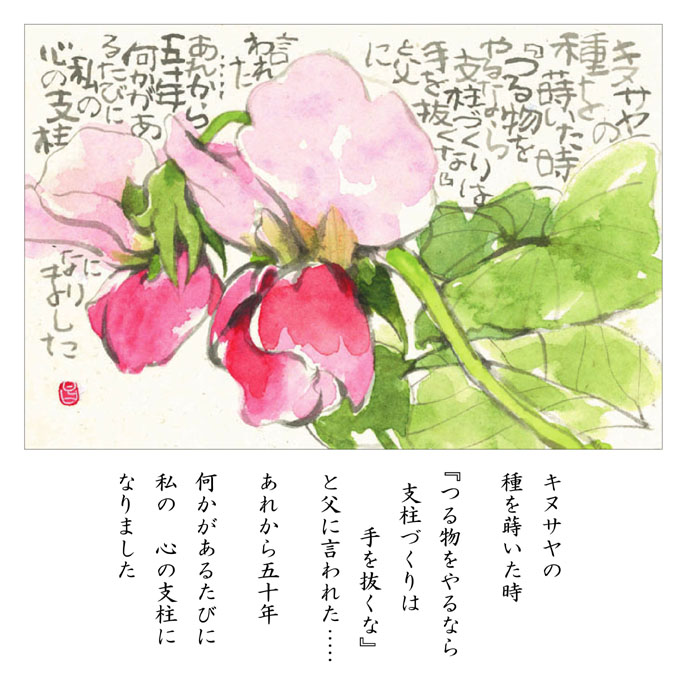 キヌサヤの
種を蒔いた時
『つる物を
やるなら
支柱づくりは
手を抜くな』
と父
に
言
われ
た
……
あれから
五十年
何かがあ
るたびに
私の
心の支柱
に
なり
ました
キヌサヤの
種を蒔いた時
『つる物をやるなら
支柱づくりは
手を抜くな』
と父に言われた……
あれから五十年
何かがあるたびに
私の 心の支柱に
なりました